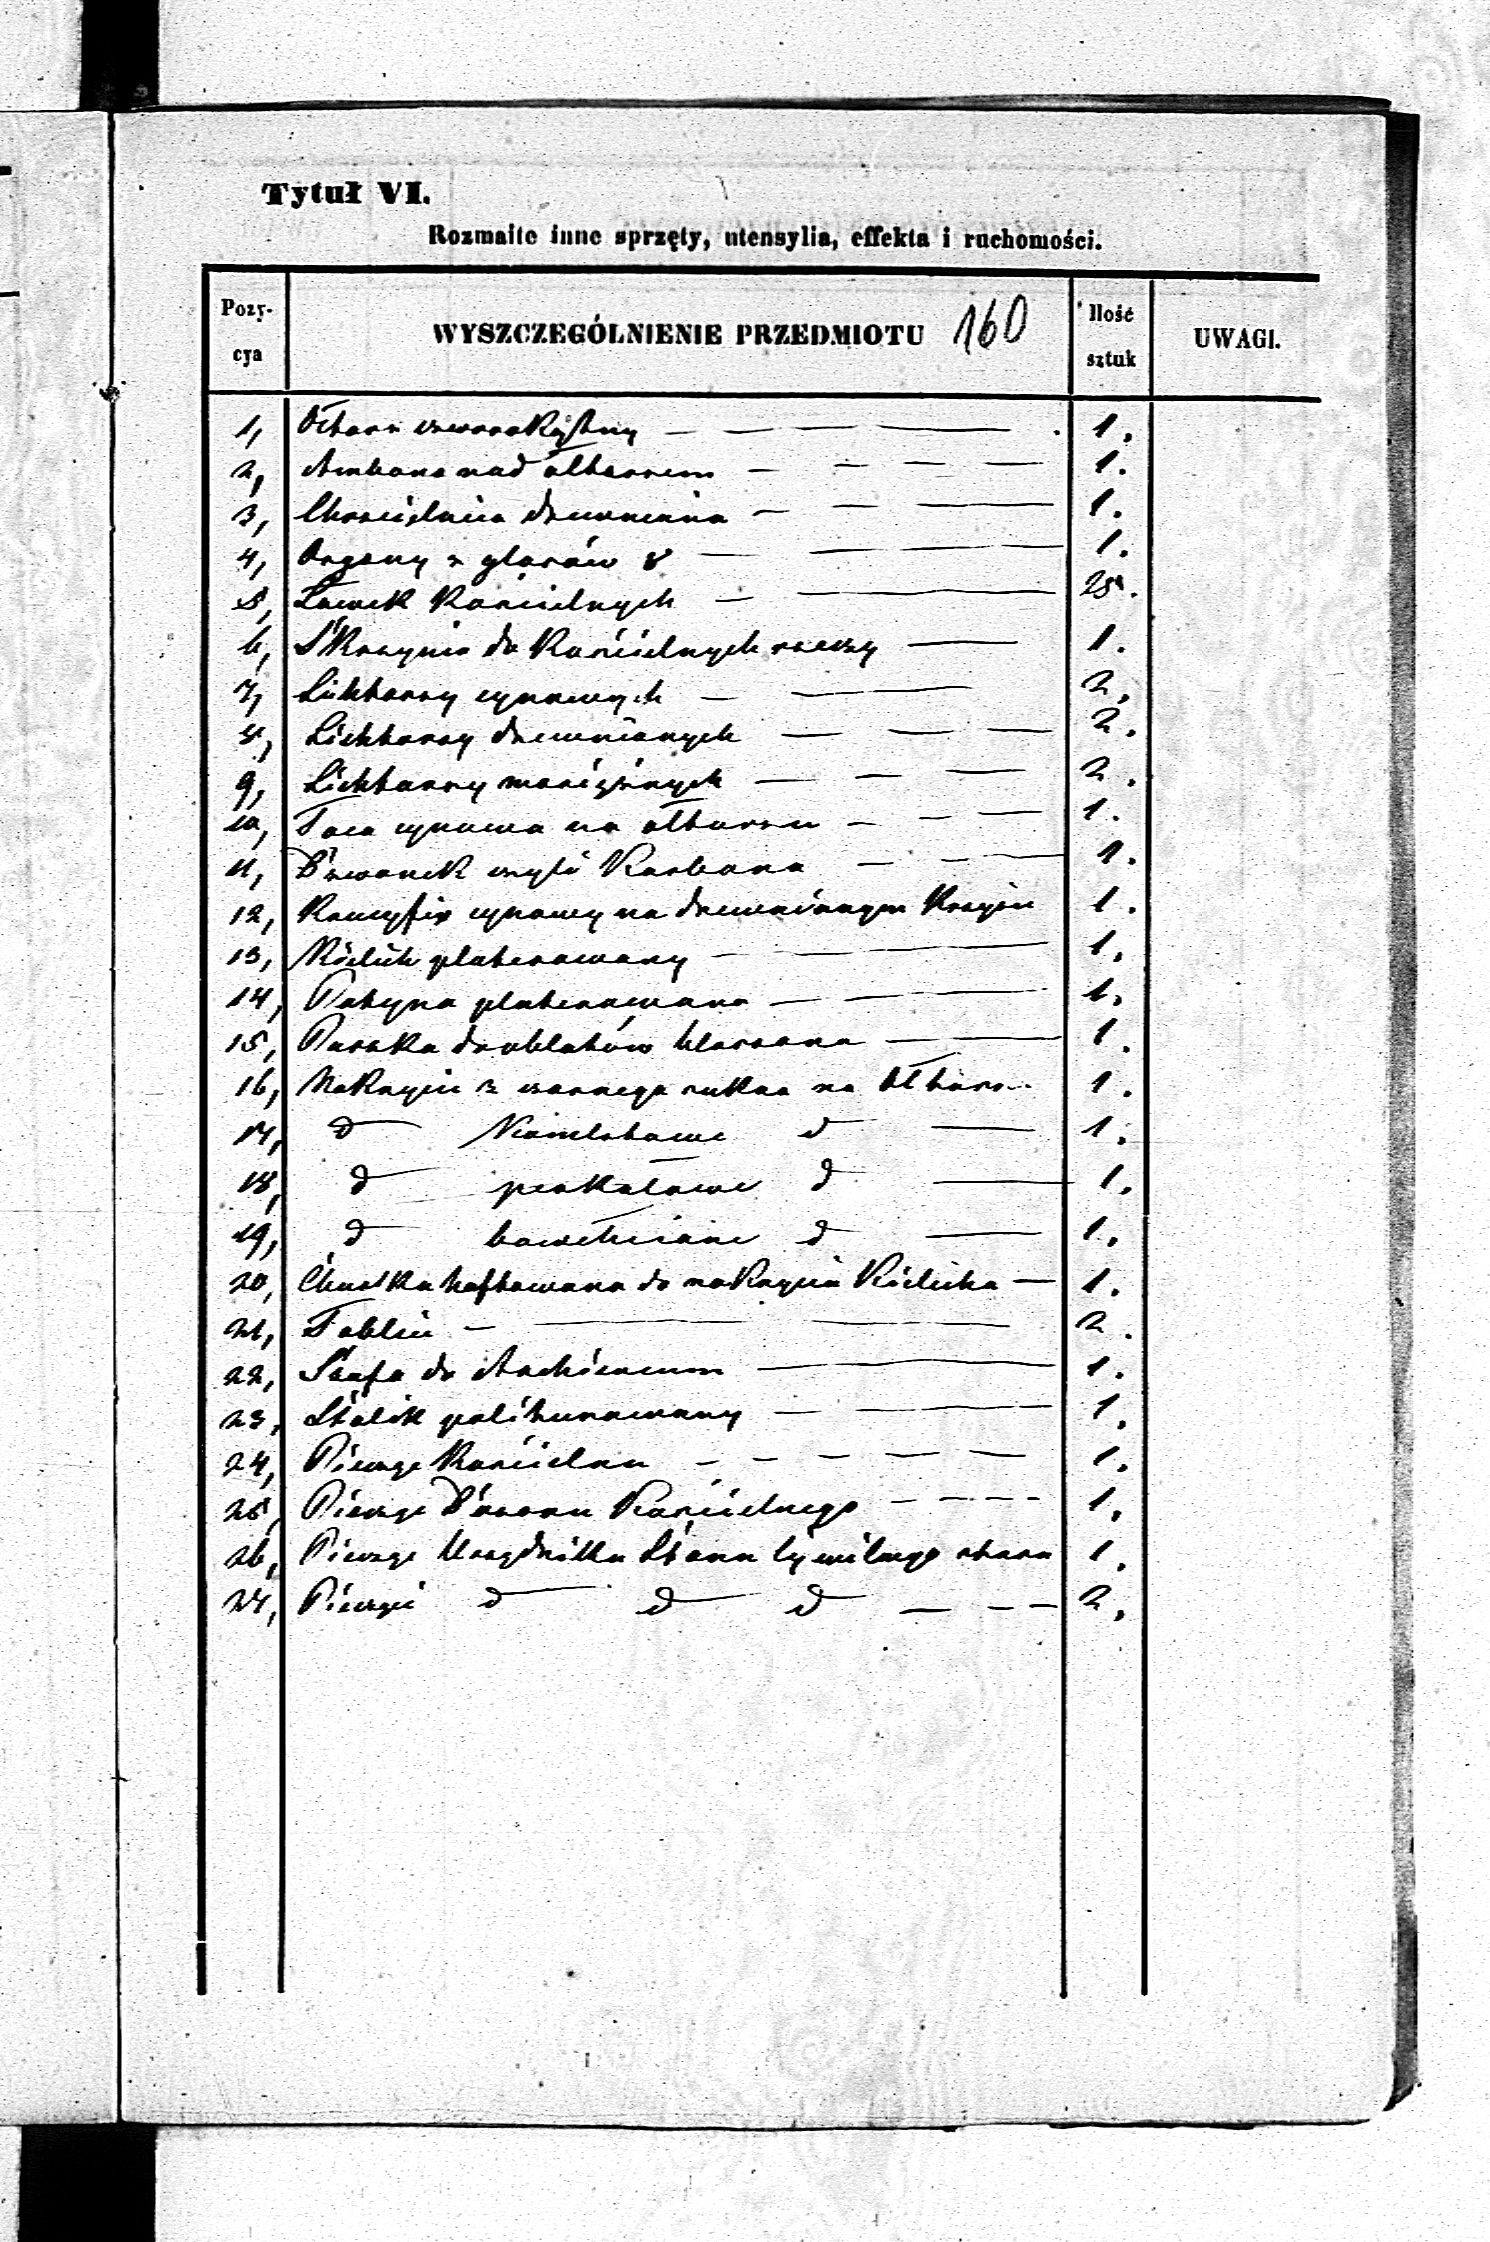 Tytuł VI.
Rozmaite inne sprzęty, utensylia, effekta i ruchomości.
Pozy-cya WYSZCZEGÓLNIENIE PRZEDMIOTU 160 Ilość sztuk UWAGI.
1, Ołtarz czworokątny — — — — 1.
2, Ambona nad ołtarzem — — — — 1.
3, Chrzcielnica drewniana — — — 1.
4, Organy z głosów 8 — — — 1.
5, Ławek Kościelnych — — 25.
6, Skrzynia do Kościelnych rzeczy — 1.
7, Lichtarzy cynowych — — 2.
8, Lichtarzy drewnianych — — — 2.
9, Lichtarzy mosiężnych — — — 2.
10, Taca cynowa na ołtarzu — — — 1.
11, Dzwonek czyli Karbona — — — 1.
12, Krucyfix cynowy na drewnianym Krzyżu 1.
13, Kielich platerowany — — — 1.
14, Patyna platerowana — — 1.
15, Puszka do oblatów blaszana — — 1.
16, Nakrycie z czarnego sukna na Ołtarz. 1.
17, d Kamlotowe d — 1.
18, d perkalowe d — 1.
19, d bawełniane d — 1.
20, Chustka haftowana do nakrycia Kielicha — 1.
21, Tablic — — — 2.
22, Szafa do Archiwum — 1.
23, Stolik politurowany — — — 1.
24, Pieczęć Kościelna — — — — — 1.
25, Pieczęć Dozoru Kościelnego — — — — 1.
26, Pieczęć Urzędnika Stanu Cywilnego stara 1.
27, Pieczęci d d d — — — 2.